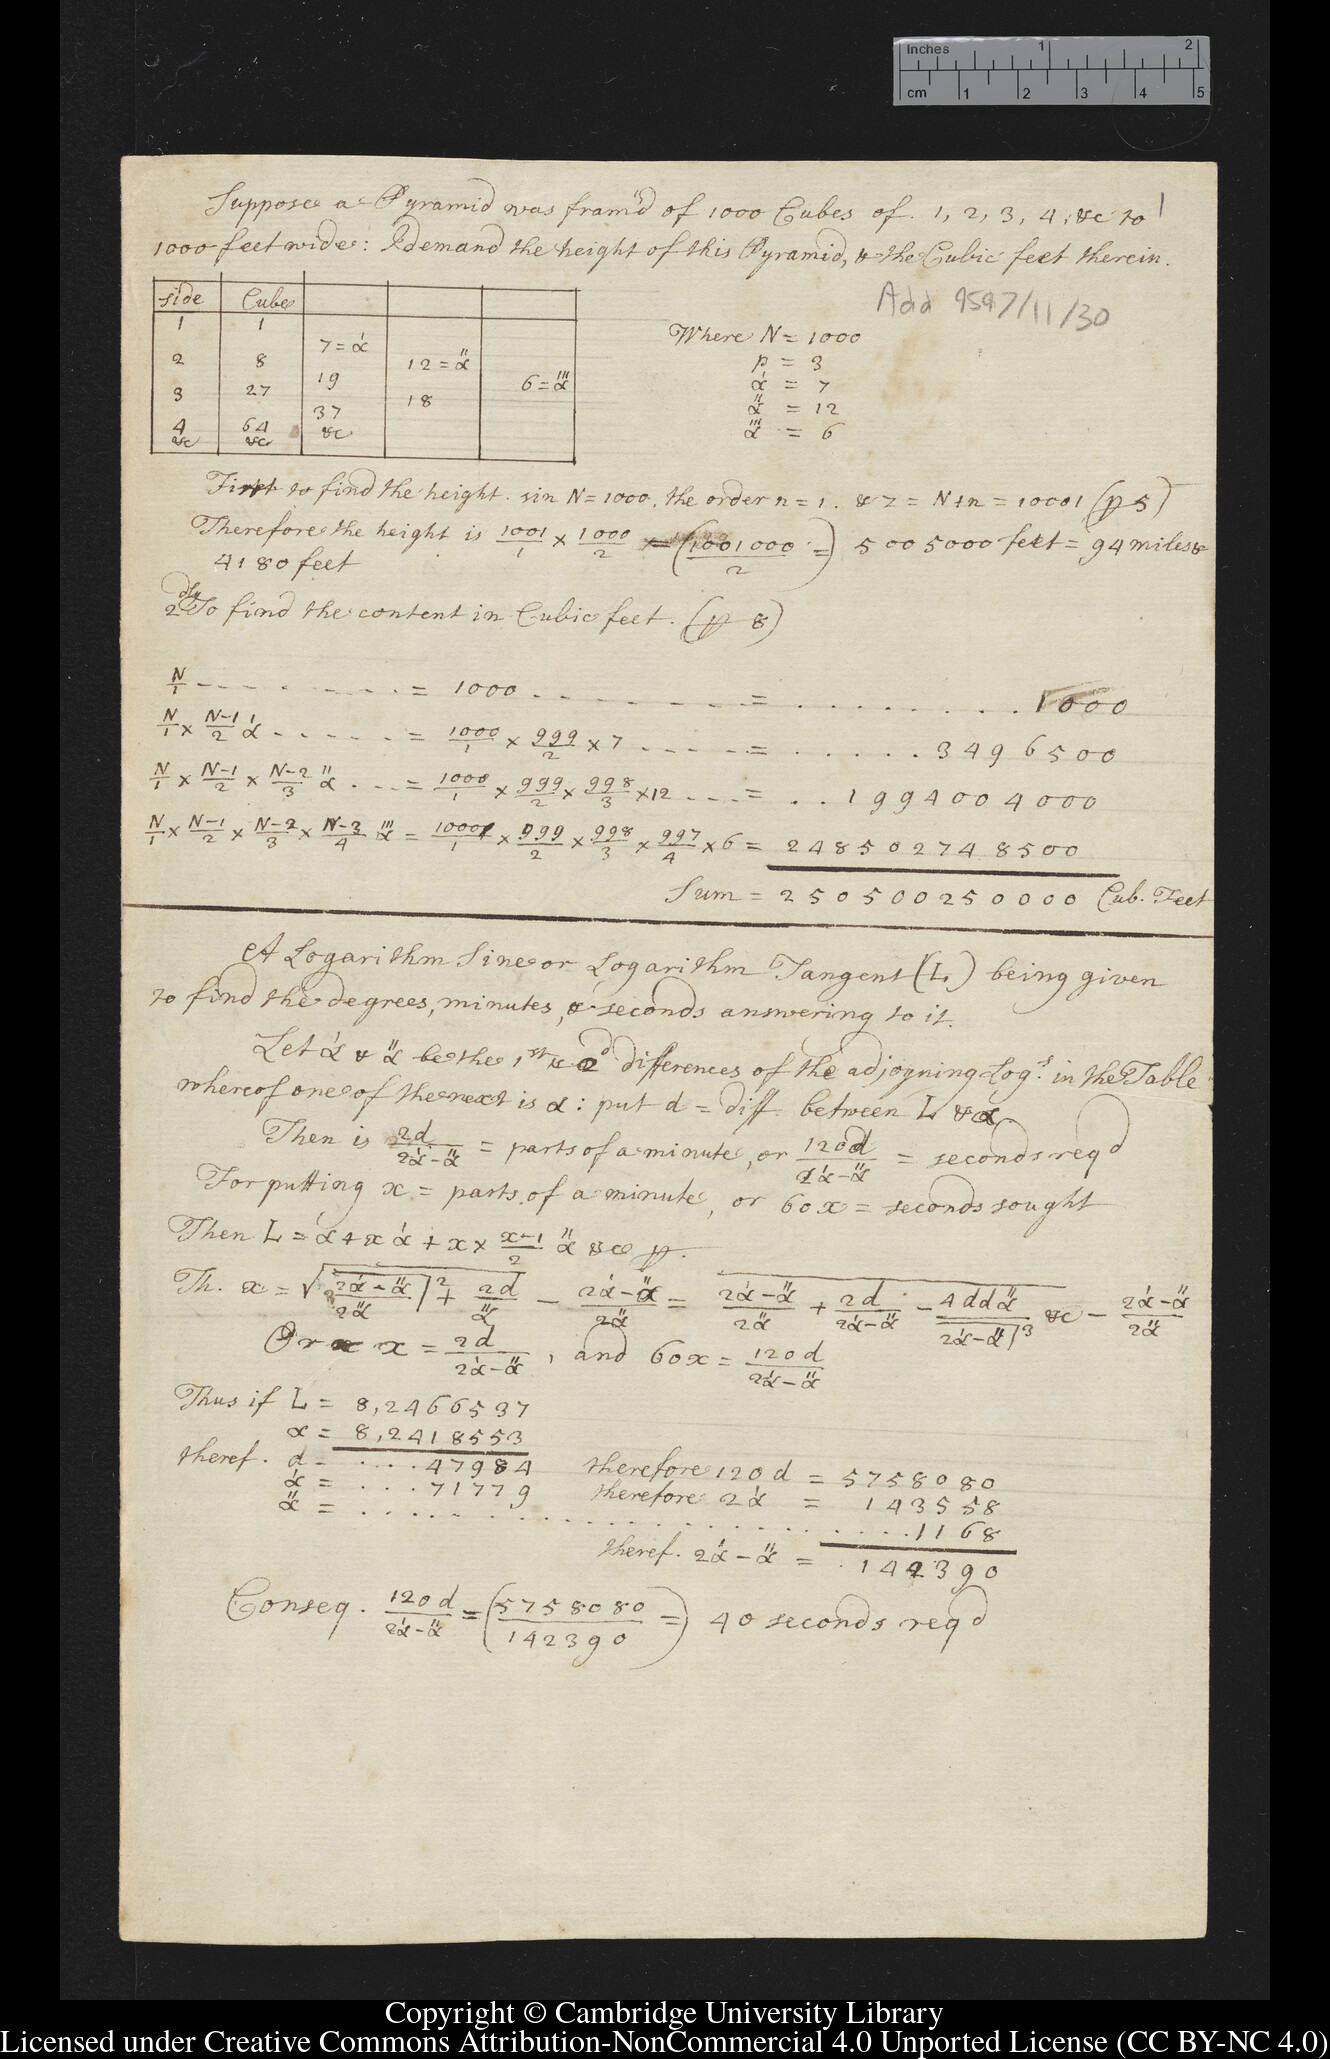 Inches 1 2
cm 1 2 3 4 5
Suppose a Pyramid was fram'd of 1000 Cubes of. 1, 2, 3, 4, &c to 1
1000 feet wide: I demand the height of this Pyramid, & the Cubic feet therein.
Add 9597/11/30
side Cube
1 1
7 = ά
2 8 12 = α̋
19 6 = α̋'
3 27 18
37
4 64 &c
&c &c
Where N = 1000
p = 3
ά = 7
α̋ = 12
α̋' = 6
First to find the height. sin N = 1000, the order n = 1. & z = N+n = 10001 (p 5)
Therefore the height is 1001/1 × 1000/2 = (1001000/2 =) 5005000 feet = 94 miles &
4180 feet
2dly To find the content in Cubic feet. (p 8)
N/1 - - - - - - - = 1000 - - - - - - = . . . . . . . . 1000
N/1 × N-1/2 ά - - - - - = 1000/1 × 999/2 × 7 - - - - = . . . . . . 3496500
N/1 × N-1/2 × N-2/3 α̋ . - - = 1000/1 × 999/2 × 998/3 × 12 - - - = . . 1994004000
N/1 × N-1/2 × N-2/3 × N-3/4 α̋' = 1000/1 × 999/2 × 998/3 × 997/4 × 6 = 248502748500
Sum = 250500250000 Cub. Feet
A Logarithm Sine or Logarithm Tangent (L) being given
to find the degrees, minutes, & seconds answering to it.
Let ά & α̋ be the 1st & 2d differences of the adjoyning Log.s in the Table
whereof one of the next is α: put d = diff. between L & α
Then is 2d/2ά-α̋ = parts of a minute, or 120d/2ά-α̋ = seconds reqd
For putting x = parts of a minute, or 60x = seconds sought
Then L = α + xά + x × x-1/2 α̋ &c p.
Th. x = √2ά-α̋/2α̋|² + 2d/α̋ - 2ά-α̋/2α̋ = 2ά-α̋/2α̋ + 2d/2ά-α̋ - 4ddα̋/2ά-α̋|³ &c - 2ά-α̋/2α̋
Or x = 2d/2ά-α̋, and 60x = 120d/2ά-α̋
Thus if L = 8,2466537
α = 8,2418553
theref. d = . . . . 47984 therefore 120d = 5758080
ά = . . . 71779 therefore 2ά = 143558
α̋ = . . . . . . . . . . . . . . . . . . . . 1168
theref. 2ά - α̋ = . 142390
Conseq. 120d/2ά-α̋ = (5758080/142390 =) 40 seconds reqd
Copyright © Cambridge University Library
Licensed under Creative Commons Attribution-NonCommercial 4.0 Unported License (CC BY-NC 4.0)